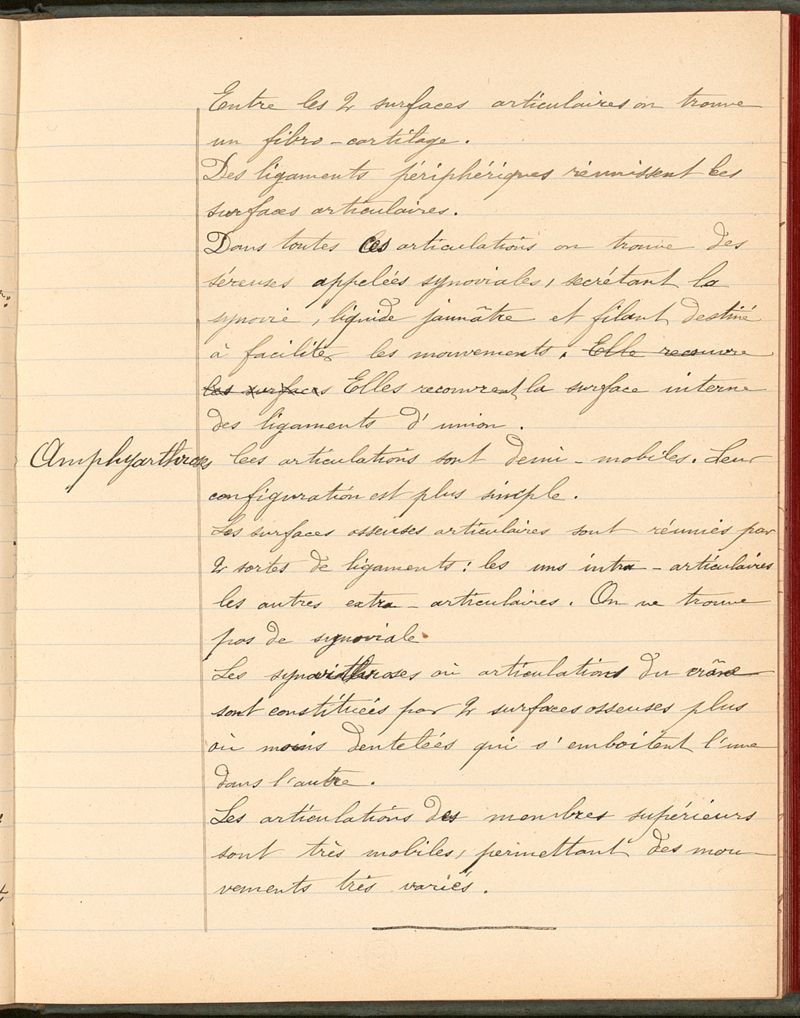 Entre les 2 surfaces articulaires on trouve
un fibro-cartilage.
Des ligaments périphériques réunissent les
surfaces articulaires.
Dans toutes Ces articulations on trouve des
séreuses appelées synoviales, secrétant la
synovie, liquide jaunâtre et filant destiné
à faciliter les mouvements. Elle recouvre
les surfaces Elles recouvrent la surface interne
des ligaments d'union.
Amphyarthroses Ces articulations sont demi-mobiles. Leur
configuration est plus simple.
Les surfaces osseuses articulaires sont réunies par
2 sortes de ligaments : les uns intra-articulaires
les autres extra-articulaires. On ne trouve
pas de synoviale
Les synarthroses ou articulations du crâne
sont constituées par 2 surfaces osseuses plus
ou moins dentelées qui s'emboitent l'une
dans l'autre.
Les articulations des membres supérieurs
sont très mobiles, permettant des mou-
vements très variés.